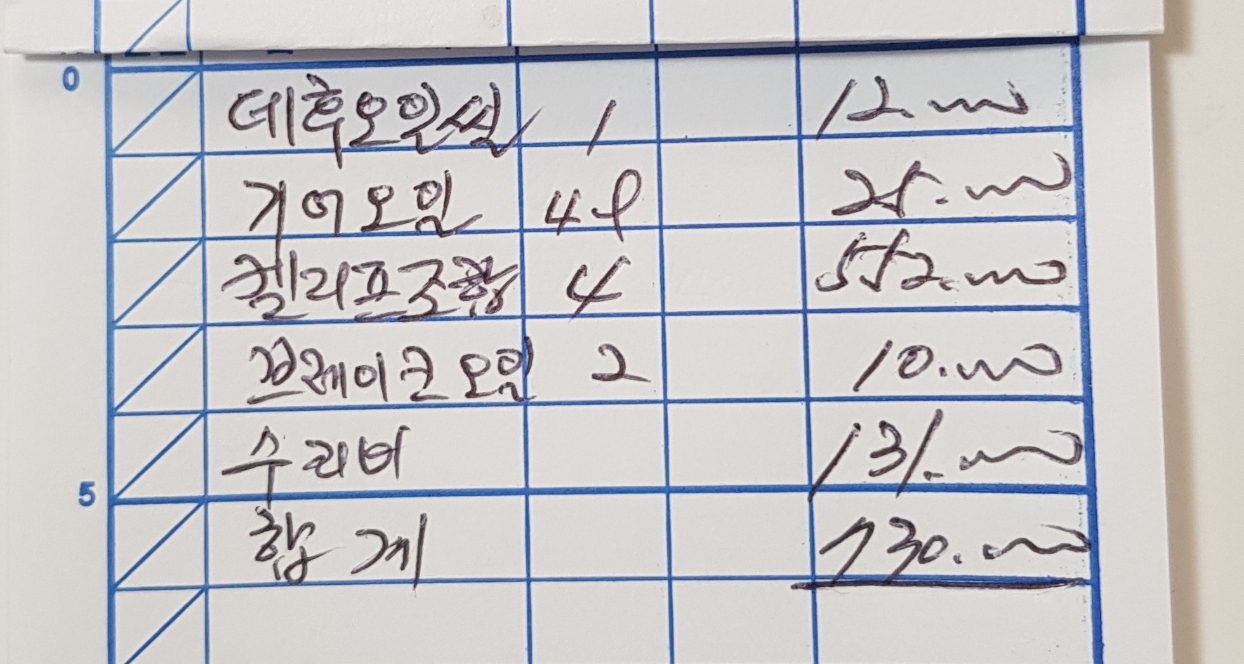 0
데후오일씰 1 12.000
기어오일 4ℓ 25.000
켈리프조합 4 552.000
브레이크오일 2 10.000
수리비 131.000
5
합계 730.000